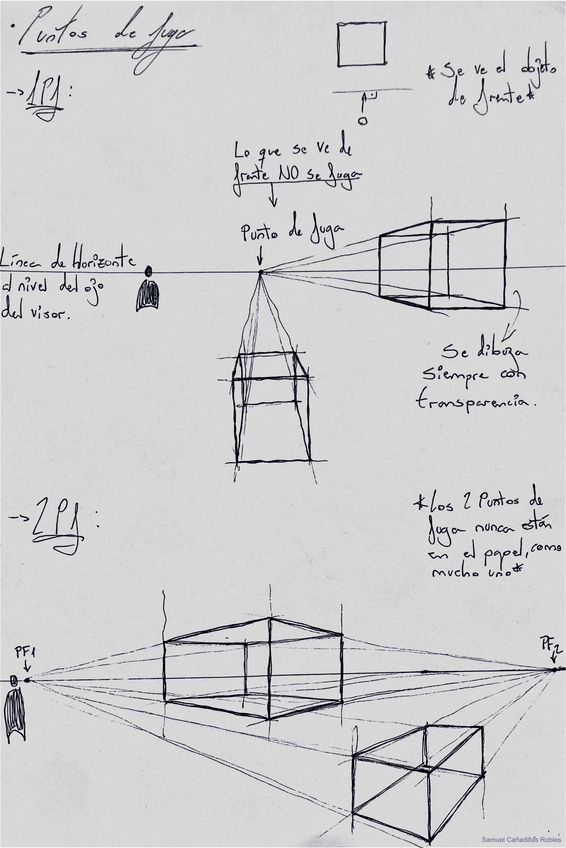 · Puntos de fuga
-> 1Pf:
* Se ve el objeto
de frente *
Lo que se ve de
frente NO se fuga
Punto de fuga
Línea de Horizonte
al nivel del ojo
del visor.
Se dibuja
siempre con
transparencia.
-> 2Pf:
* Los 2 Puntos de
fuga nunca están
en el papel, como
mucho uno *
PF1
PF2
Samuel Cañadillas Robles